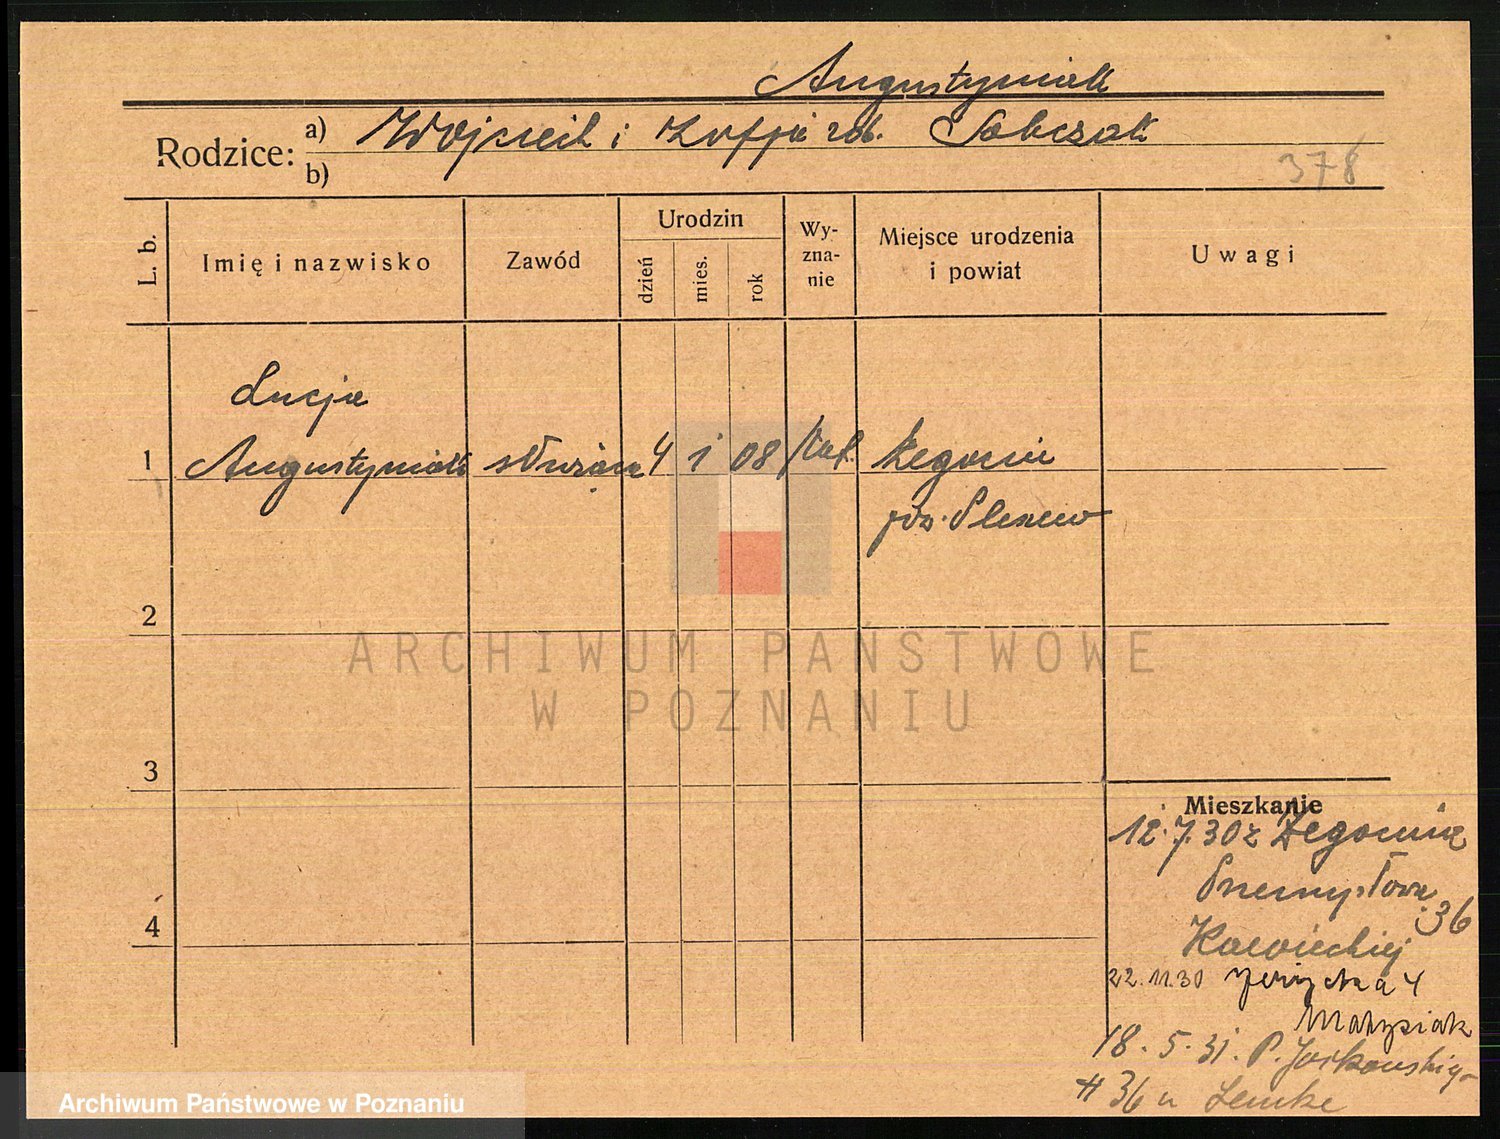 Augustyniak
Rodzice: a) Wojciech i Zofja rob. Sobczak
b)
378
L. b.
Imię i nazwisko
Zawód
Urodzin
dzień
mies.
rok
Wy-
zna-
nie
Miejsce urodzenia
i powiat
Uwagi
Łucja
1 Augustyniak służąca 4 1 08 kat. Żegocin
pow. Pleszew
2
ARCHIWUM PAŃSTWOWE
W POZNANIU
3
Mieszkanie
12.7.30 z Żegocina
Przemysłowa
36
4
22.11.30 Jeżycka 4
Matysiak
18.5.31. P.
36 u Lemke
Archiwum Państwowe w Poznaniu